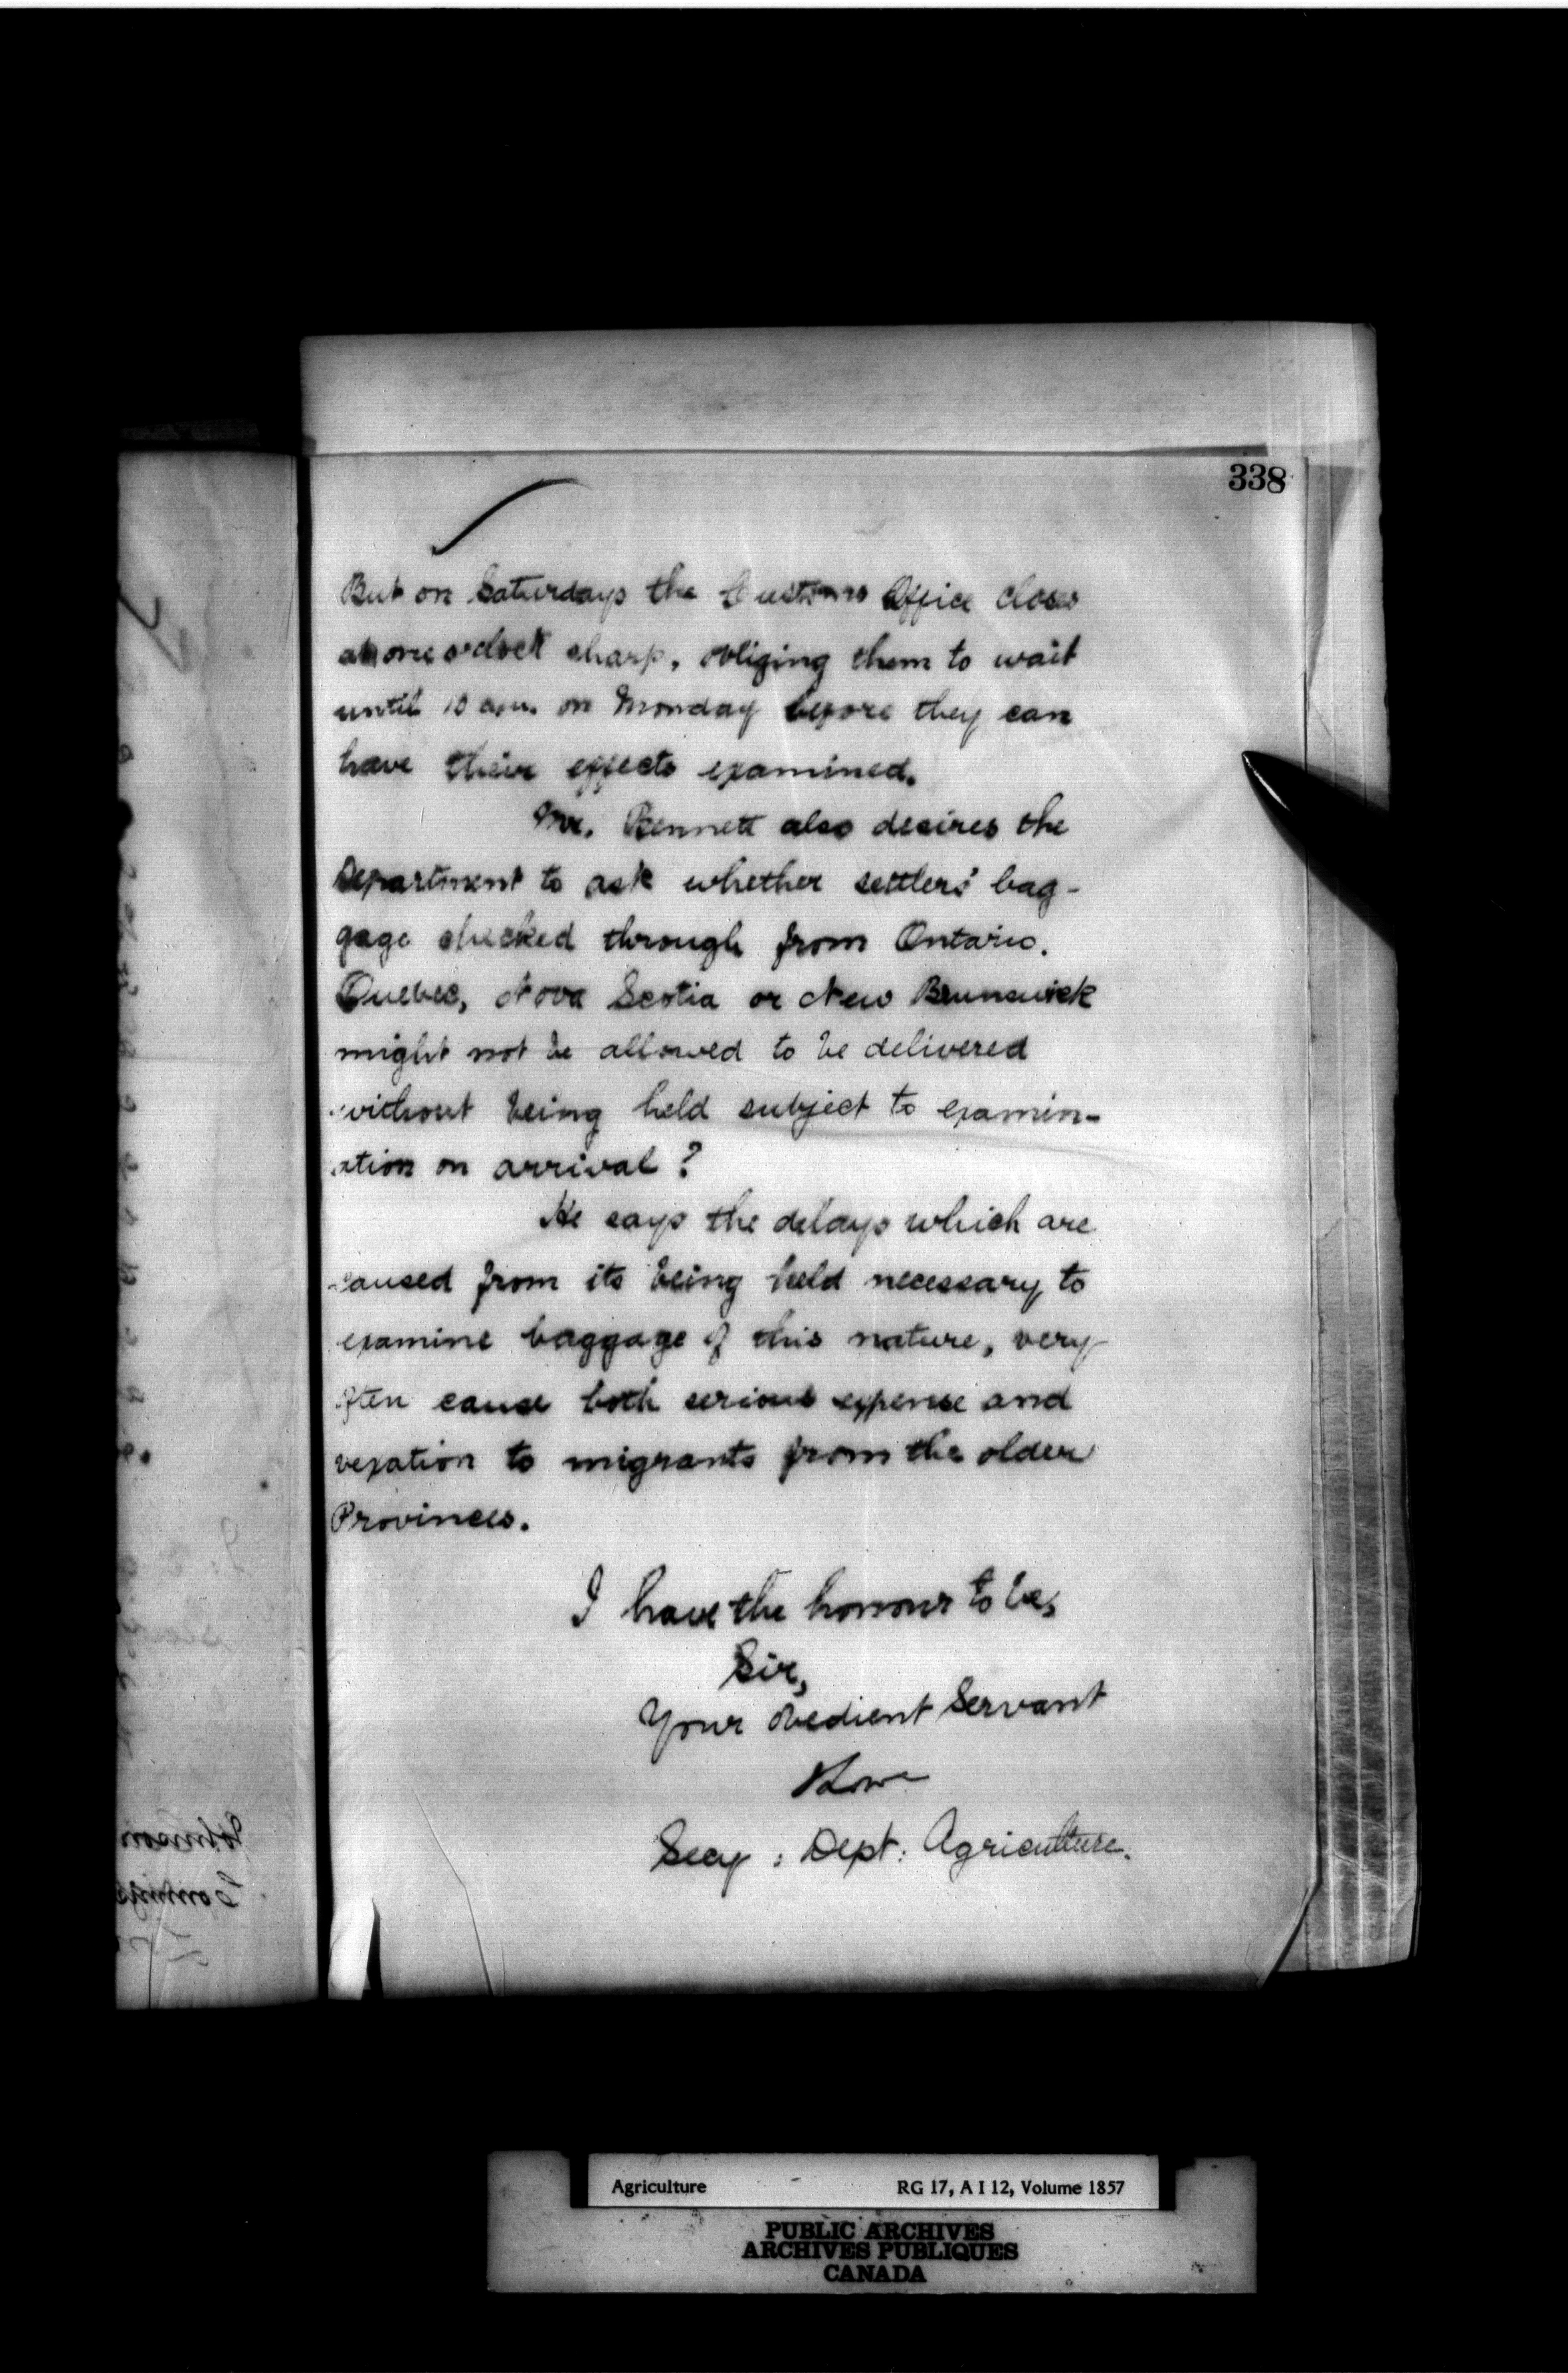 338
But on Saturdays the Customs Office closes
at one o'clock sharp, obliging them to wait
until 10 a.m. on Monday before they can
have their effects examined.
Mr. Bennett also desires the
Department to ask whether settlers' bag-
gage checked through from Ontario.
Quebec, Nova Scotia or New Brunswick
might not be allowed to be delivered
without being held subject to examin-
ation on arrival?
He says the delays which are
caused from its being held necessary to
examine baggage of this nature, very
often cause both serious expense and
vexation to migrants from the older
Provinces.
I have the honour to be,
Sir,
Your obedient Servant
Lowe
Secy : Dept: Agriculture.
Agriculture RG 17, A I 12, Volume 1857
PUBLIC ARCHIVES
ARCHIVES PUBLIQUES
CANADA